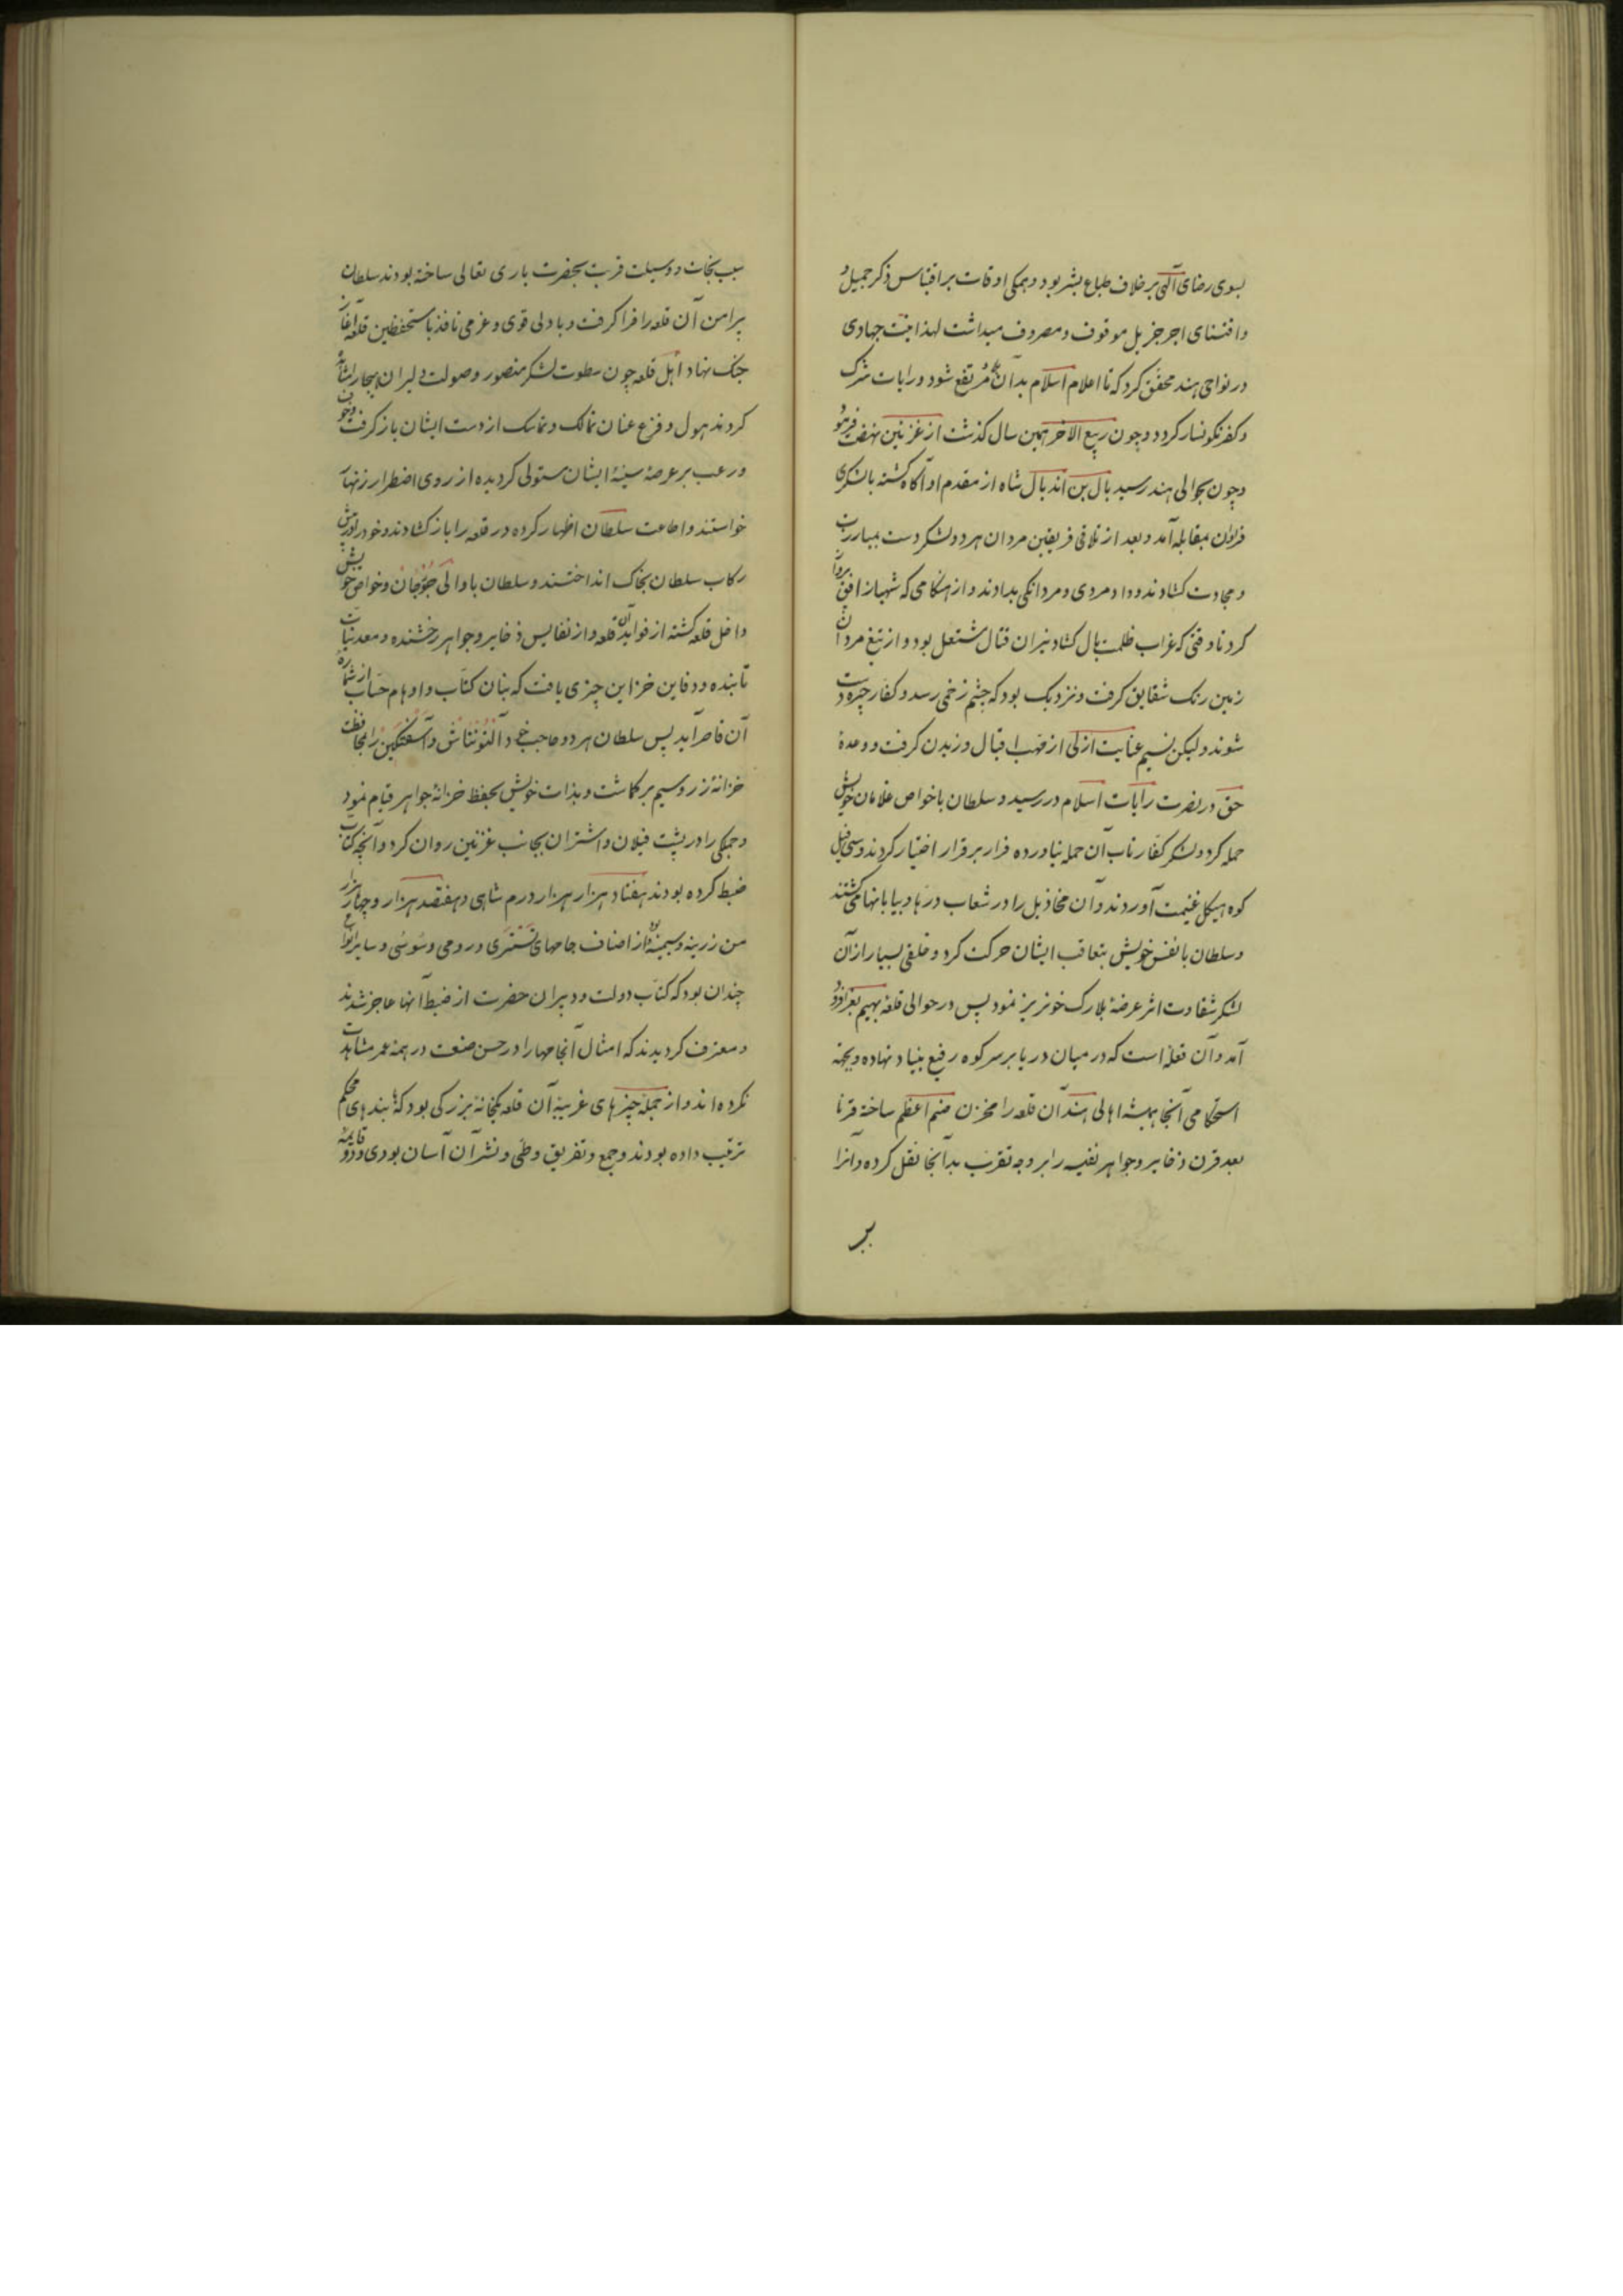 بسوی رضای آلهی بر خلاف طباع بشر بود و همکی اوقات بر اقتباس ذکر جمیل و
و اقتنای اجر جزیل موقوف و مصروف میداشت لهذا نیت جهادی
در نواحی هند محقق کرد که تا اعلام اسلام بدان مرتفع شود و رایات شرک
و کفر نکونسار کردد و چون ربیع الاخر همین سال کذشت از غزنین نهضت فرمود
و چون بحوالی هند رسید بال بن اندبال شاه از مقدم او آکاه کشته با لشکری
فراوان بمقابله آمد و بعد از تلاقی فریقین مردان هر دو لشکر دست بمبارزت
و مجادت کشادند و داد مردی و مردانکی بدادند و از هنکامی که شهباز افق پرواز
کرد تا وقتی که غراب ظلمت بال کشاد نیران قتال مشتعل بود و از تیغ مردان
زمین رنک شقایق کرفت و نزدیک بود که چشم زخمی رسد و کفار چیره دست
شوند و لیکن نسیم عنایت ازلی از مهب اقبال وزیدن کرفت و وعدۀ
حق در نصرت رایات اسلام در رسید و سلطان با خواص غلامان خویش
حمله کرد و لشکر کفار تاب آن حمله نیاورده فرار بر قرار اختیار کردند و سی فیل
کوه هیکل غنیمت آوردند و آن مخاذیل را در شعاب و درها و بیابانها می کشتند
و سلطان بانفس خویش بتعاقب ایشان حرکت کرد و خلقی بسیار از آن
لشکر شقاوت اثر عرضۀ بلارک خونریز نمود پس در حوالی قلعه بهیم بغرا فرود
آمد و آن قلعۀ است که در میان دریا بر سر کوه رفیع بنیاد نهاده و بجهة
استحکامی آنجا همیشه اهالی هند آن قلعه را مخزن صنم اعظم ساخته قرنا
بعد قرن ذخایر و جواهر نفیسه را بر وجه تقرب بدآنجا نقل کرده و آنرا
سبب نجات و وسیلت قربت بحضرت باری تعالی ساخته بودند سلطان
پیرامن آن قلعه را فرا کرفت و با دلی قوی و عزمی نافذ با مستحفظین قلعه آغاز
جنک نهاد اهل قلعه چون سطوت لشکر منصور و صولت دلیران پیکار مشاهده
کردند هول و فزع عنان تمالک و تماسک از دست ایشان باز کرفت و خوف
و رعب بر عرصۀ سینۀ ایشان مستولی کردیده از روی اضطرار زنهار
خواستند و اطاعت سلطان اظهار کرده در قلعه را باز کشادند و خود را در پیش
رکاب سلطان بخاک انداختند و سلطان با والی جوزجان و خواص خویش
داخل قلعه کشته از فواید آن قلعه و از نفایس ذخایر و جواهر رخشنده و معدنیات
تابنده و دفاین خزاین چیزی یافت که بنان کتاب و اوهام حساب از شماره
آن قاصر آید پس سلطان هر دو حاجب خود آلتونتاش و آسغتکین را بمحافظت
خزانۀ زر و سیم بر کماشت و بذات خویش بحفظ خزانۀ جواهر قیام نمود
و جمکی را در پشت فیلان و اشتران بجانب غزنین روان کرد و آنچه کتاب
ضبط کرده بودند هفتاد هزار هزار درم شاهی و هفتصد هزار و چهار هزار
من زرینه و سیمینه و از اصناف جامهای تستری و رومی و سوسی و سایر انواع
چندان بود که کتاب دولت و دبیران حضرت از ضبط آنها عاجز شدند
و معترف کردیدند که امثال آنجامها را در حسن صنعت در همۀ عمر مشاهدت
نکرده اند و از جمله چیزهای غریبۀ آن قلعه یکخانۀ بزرکی بود که با بندهای محکم
ترتیب داده بودند و جمع و تفریق و طی و نشر آن آسان بودی و دو قایمه